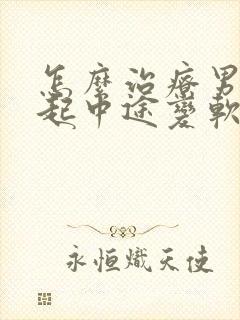 怎麼治療男
起中途變軟
永恒熾天使